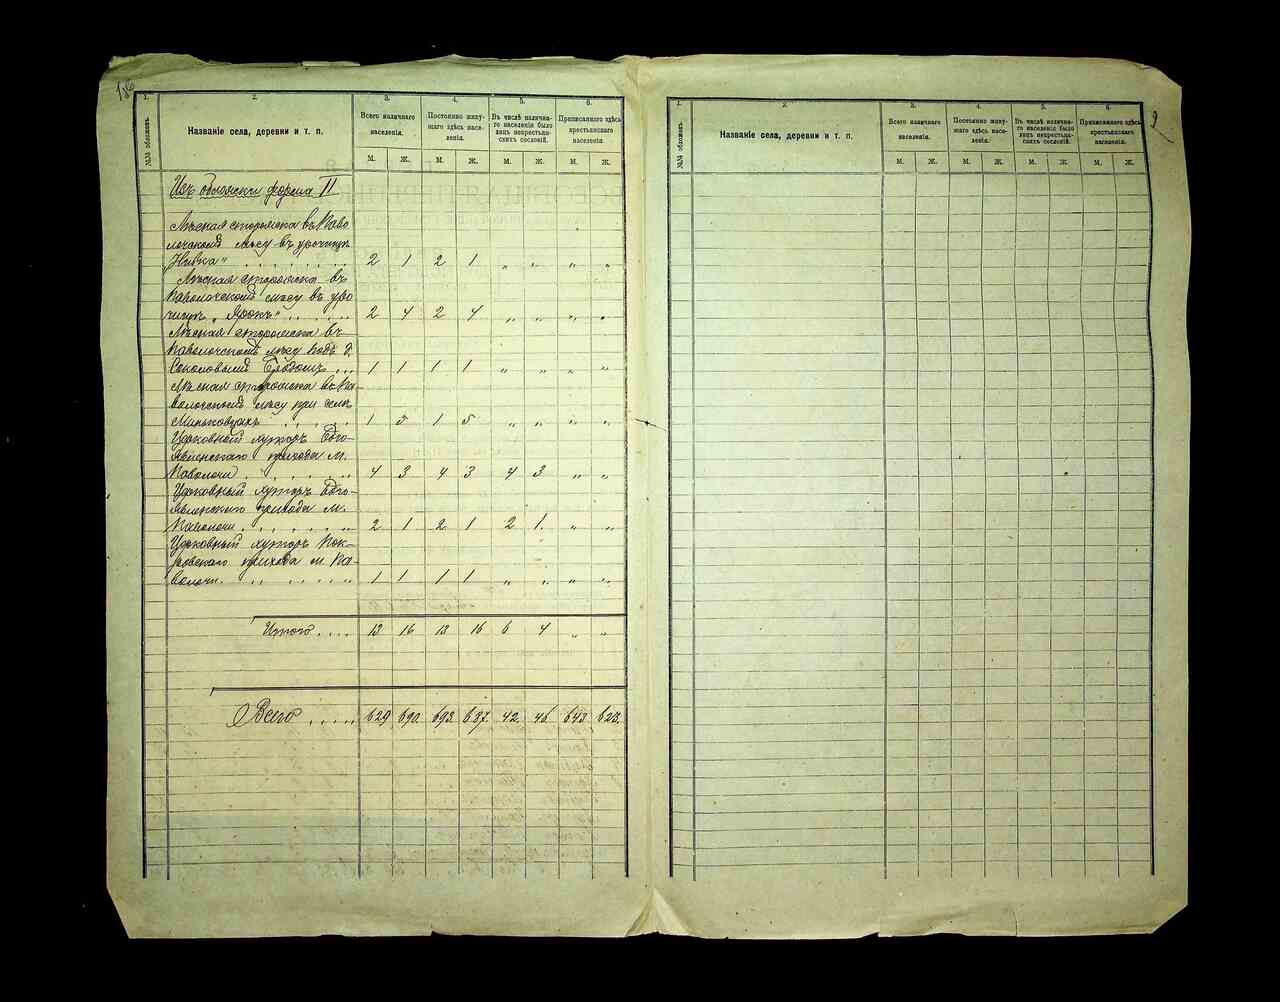 186
1. 2. 3. 4. 5. 6.
№№ обложекъ.
Названіе села, деревни и т. п.
Всего наличнаго населенія.
Постоянно живу-
щаго здѣсь насе-
ленія.
Въ числѣ налична-
го населенія было
лицъ некрестьян-
скихъ сословій.
Приписаннаго здѣсь
крестьянскаго
населенія.
М. Ж. М. Ж. М. Ж. М. Ж.
Изъ обложки форма II
Лѣсная сторожка въ Паво
лочскомъ лѣсу въ урочищѣ
Нивка" . . . . . . 2 1 2 1 " " " "
Лѣсная сторожка въ
Паволочскомъ лѣсу въ уро
чищѣ " . . . . . 2 4 2 4 " " " "
Лѣсная сторожка въ
Паволочскомъ лѣсу подъ д.
Соколовымъ . . . 1 1 1 1 " " " "
Лѣсная сторожка въ Па
волочскомъ лѣсу при селѣ
Миньковцахъ . . . . . 1 5 1 5 " " " "
Церковный хуторъ Бого-
явленскаго прихода м.
Паволочи . . . . . . 4 3 4 3 4 3 " "
Церковный хуторъ Бого-
явленскаго прихода м.
Паволочи . . . . . . 2 1 2 1 2 1. " "
Церковный хуторъ Пок-
ровскаго прихода м. Па-
волочи. . . . . . . 1 1 1 1 " " " "
Итого . . . . 13 16 13 16 6 4 " "
Всего . . . . . 629 690 693 687. 42. 46 643 623.
9
1. 2. 3. 4. 5. 6.
№№ обложекъ.
Названіе села, деревни и т. п.
Всего наличнаго
населенія.
Постоянно живу-
щаго здѣсь насе-
ленія.
Въ числѣ налична-
го населенія было
лицъ некрестьян-
скихъ сословій.
Приписаннаго здѣсь
крестьянскаго
населенія.
М. Ж. М. Ж. М. Ж. М. Ж.